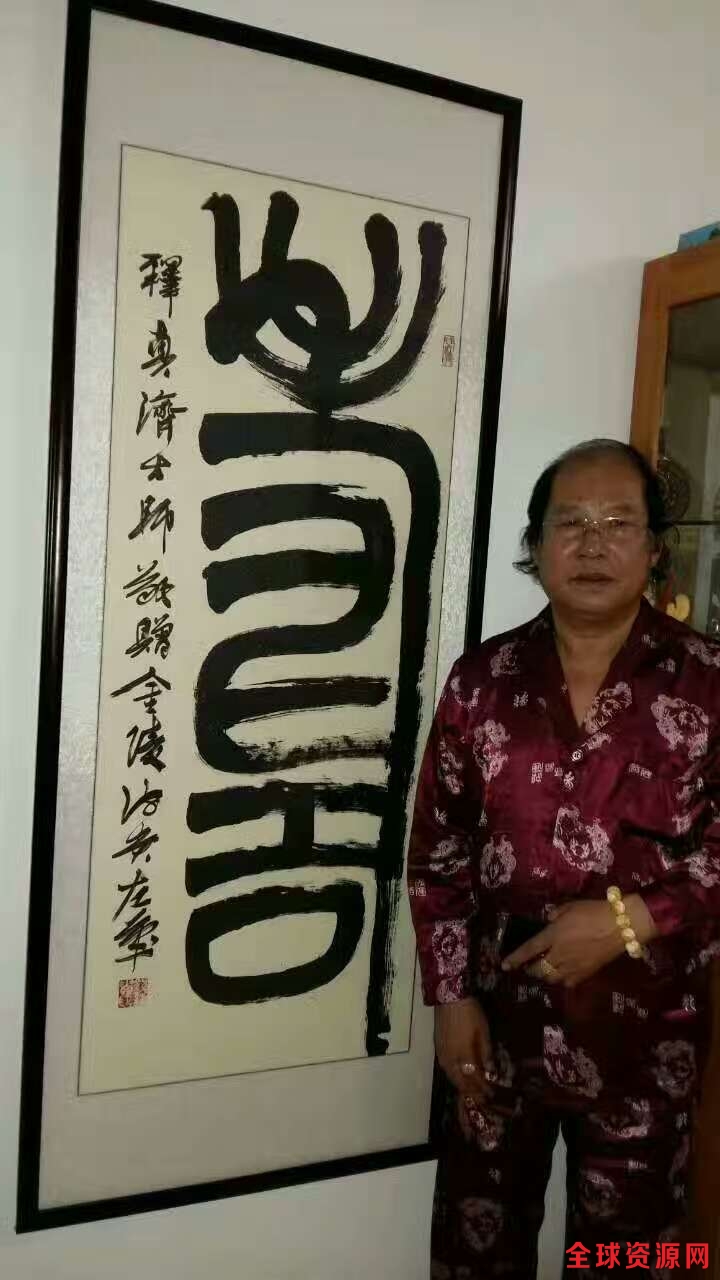 壽
釋真濟大師敬贈金陵左筆
全球资源网